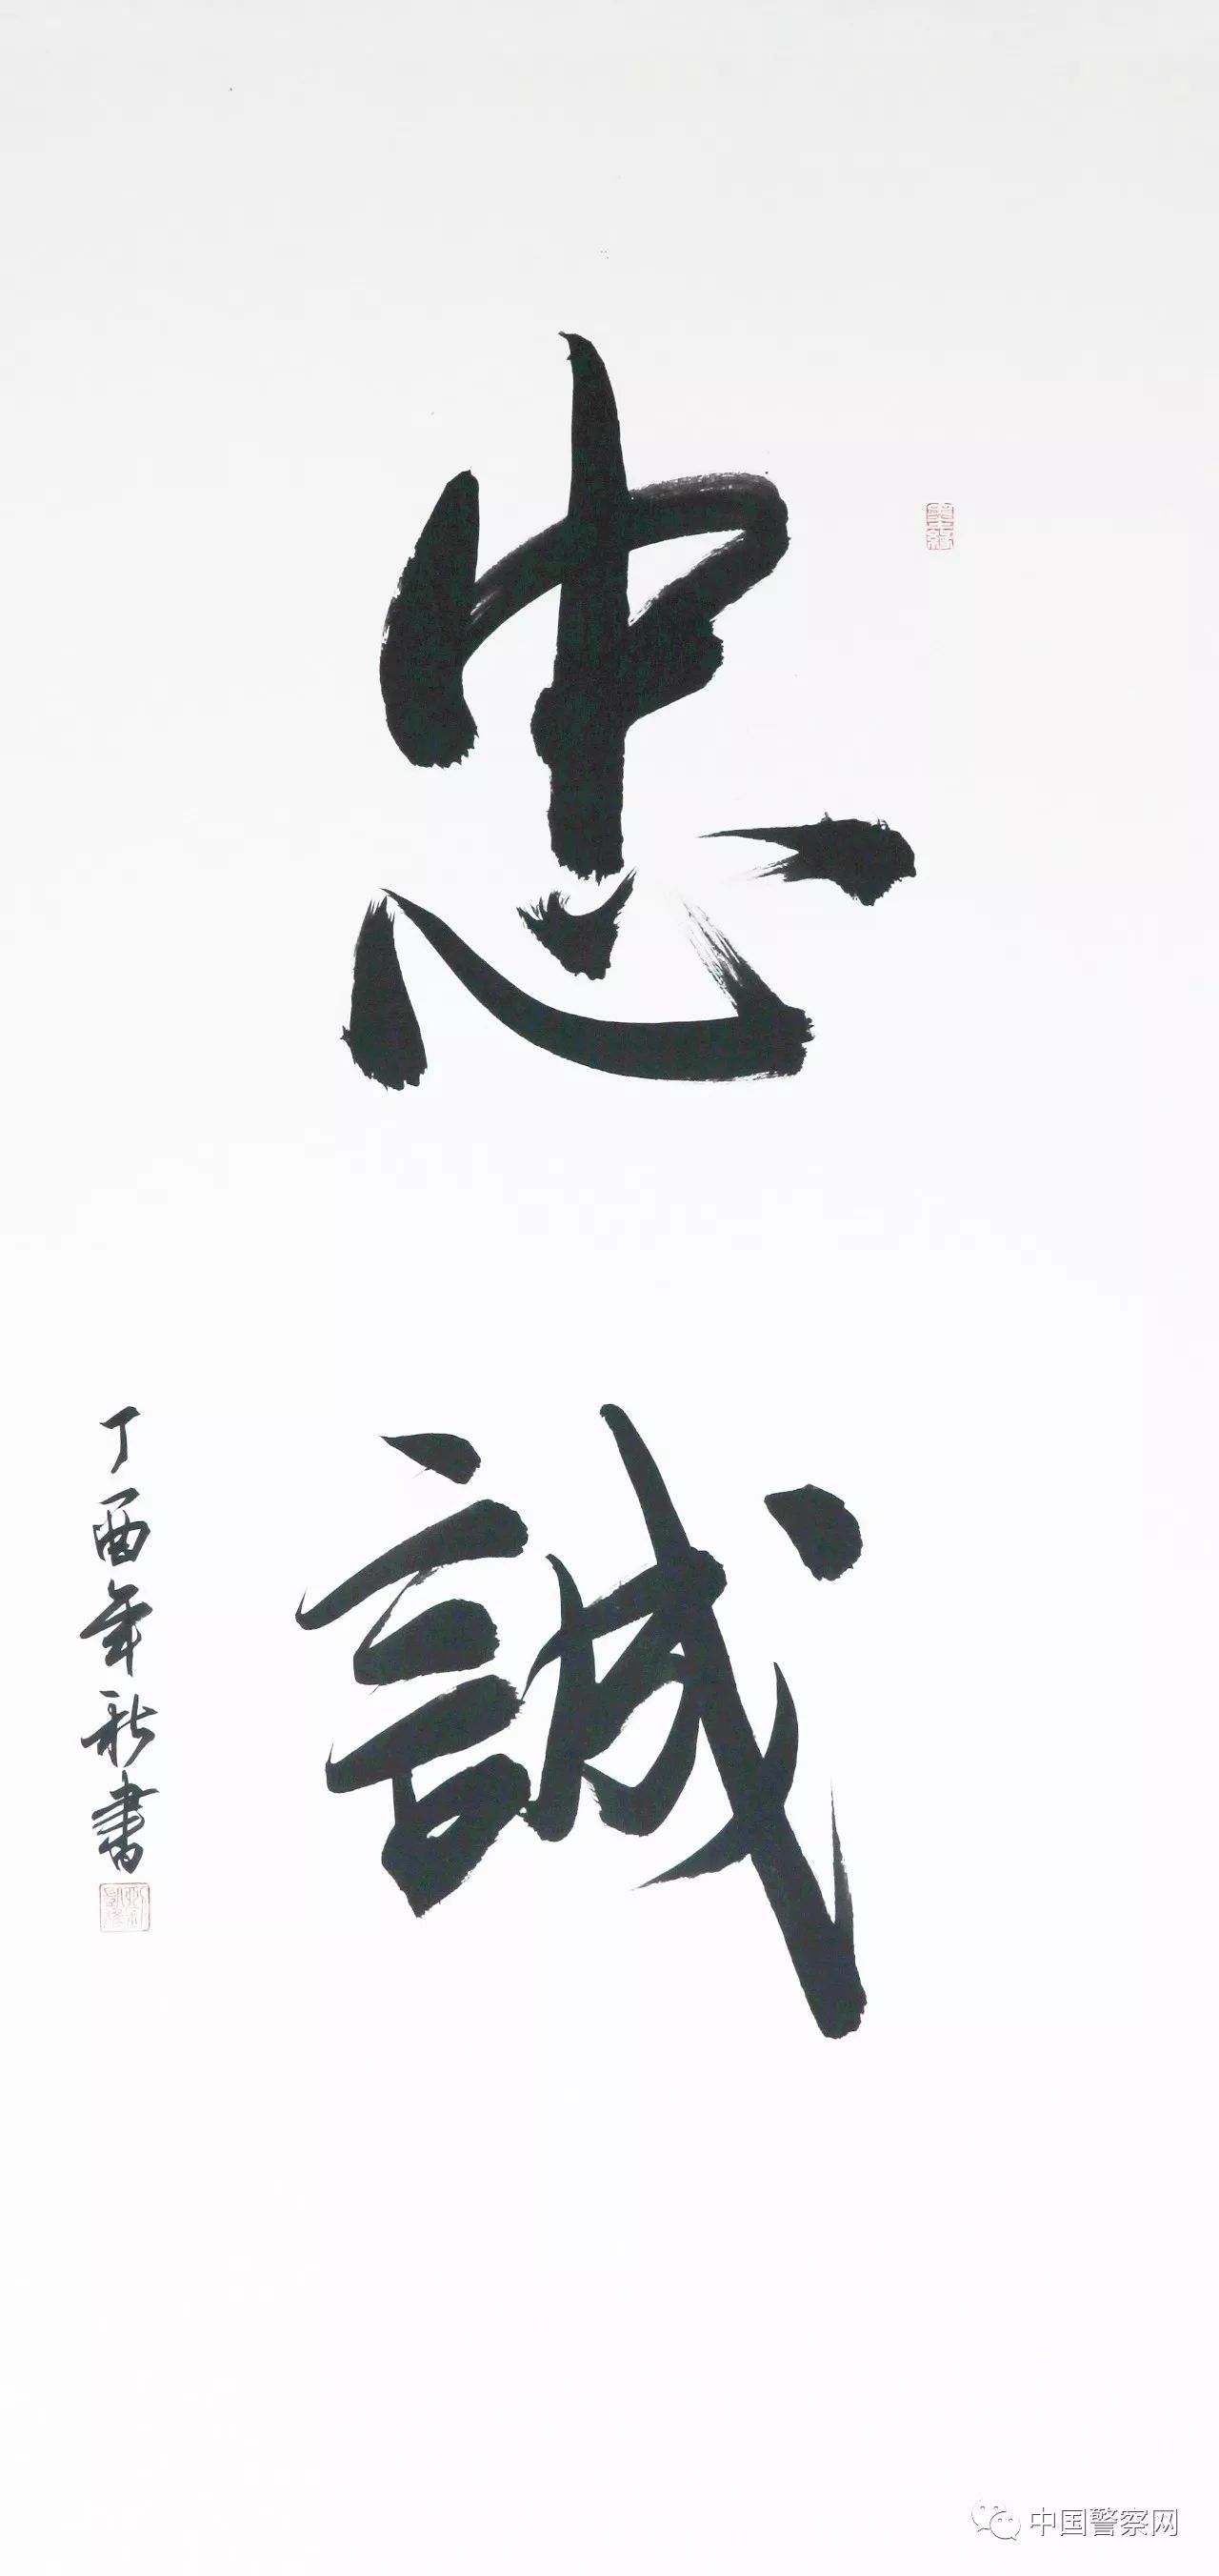 忠
誠
丁酉年秋書
中国警察网